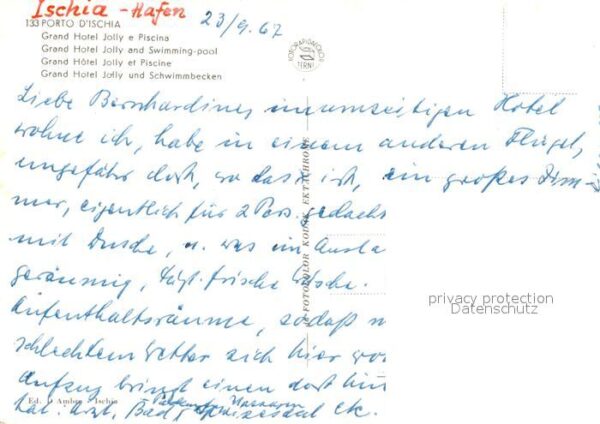 Ischia - Hafen
23/9.67
133 PORTO D'ISCHIA
Grand Hotel Jolly e Piscina
Grand Hotel Jolly and Swimming-pool
Grand Hôtel Jolly et Piscine
Grand Hotel Jolly und Schwimmbecken
Liebe Bernhardine, in umseitigen Hotel
wohne ich, habe in einem anderen Flügel,
ungefähr dort, wo das x ist, ein großes Zim-
mer, eigentlich für 2 Pers. gedacht
mit Dusche, u. was im Ausla
geräumig, tägl. frische Wäsche.
Aufenthaltsräume, sodaß
schlechtem Wetter sich hier
Aufzug bringt einen dort
Bad, Speisesaal etc.
Ed. D'Ambra - Ischia
FOTOCOLOR KODAK EKTACHROME
TERNI
privacy protection
Datenschutz